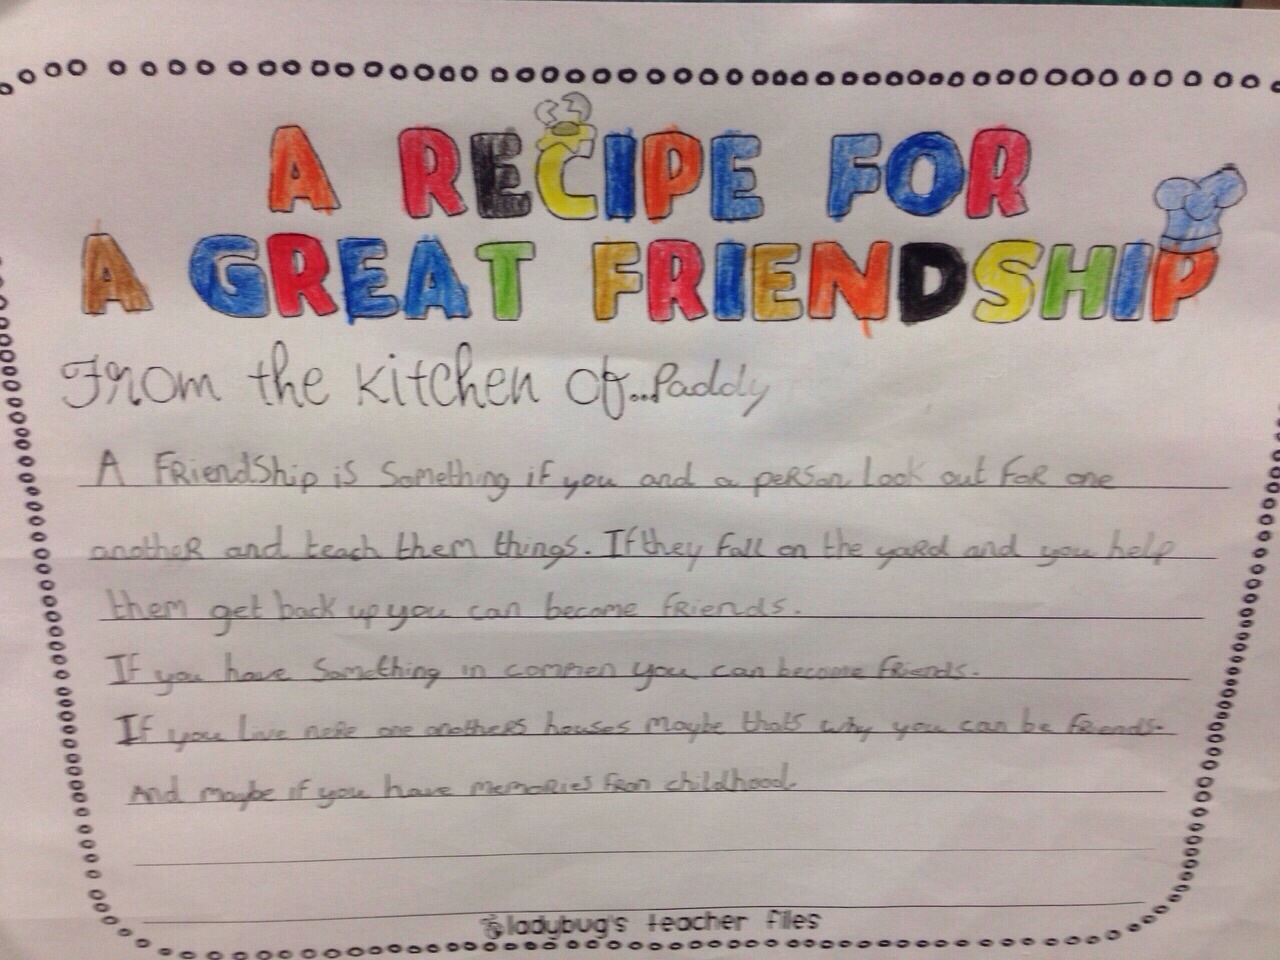 A RECIPE FOR
A GREAT FRIENDSHIP
From the kitchen of..Paddy
A Friendship is Something if you and a person look out for one
another and teach them things. If they fall on the yard and you help
them get back up you can become friends.
If you have Something in commen you can become friends.
If you live neire one anothers houses maybe thats why you can be friends.
And maybe if you have memories from childhood.
ladybug's teacher files